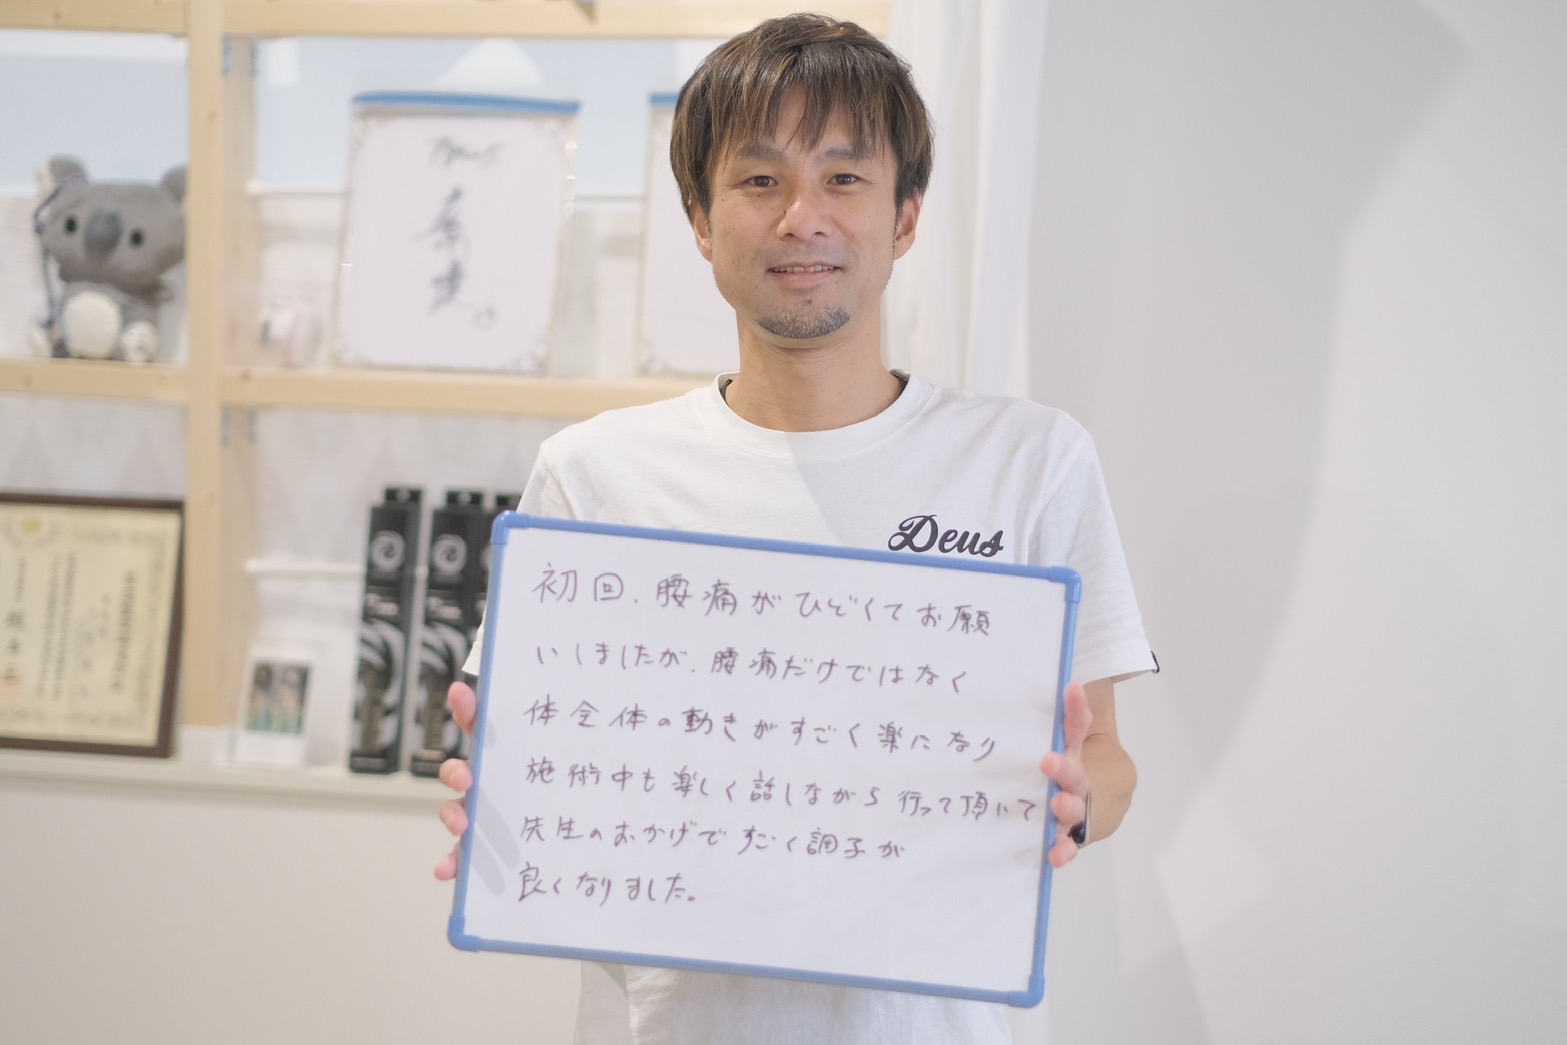 Deus
初回、腰痛がひどくてお願
いしましたが、腰痛だけではなく
体全体の動きがすごく楽になり
施術中も楽しく話しながら行って頂いて
先生のおかげですごく調子が
良くなりました。